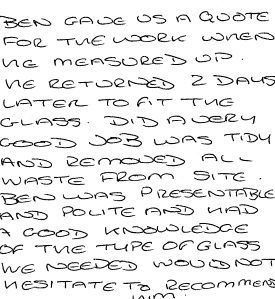 BEN GAVE US A QUOTE
FOR THE WORK WHEN
HE MEASURED UP.
HE RETURNED 2 DAYS
LATER TO FIT THE
GLASS. DID A VERY
GOOD JOB WAS TIDY
AND REMOVED ALL
WASTE FROM SITE.
BEN WAS PRESENTABLE
AND POLITE AND HAD
A GOOD KNOWLEDGE
OF THE TYPE OF GLASS
WE NEEDED WOULD NOT
HESITATE TO RECOMMEND
HIM.